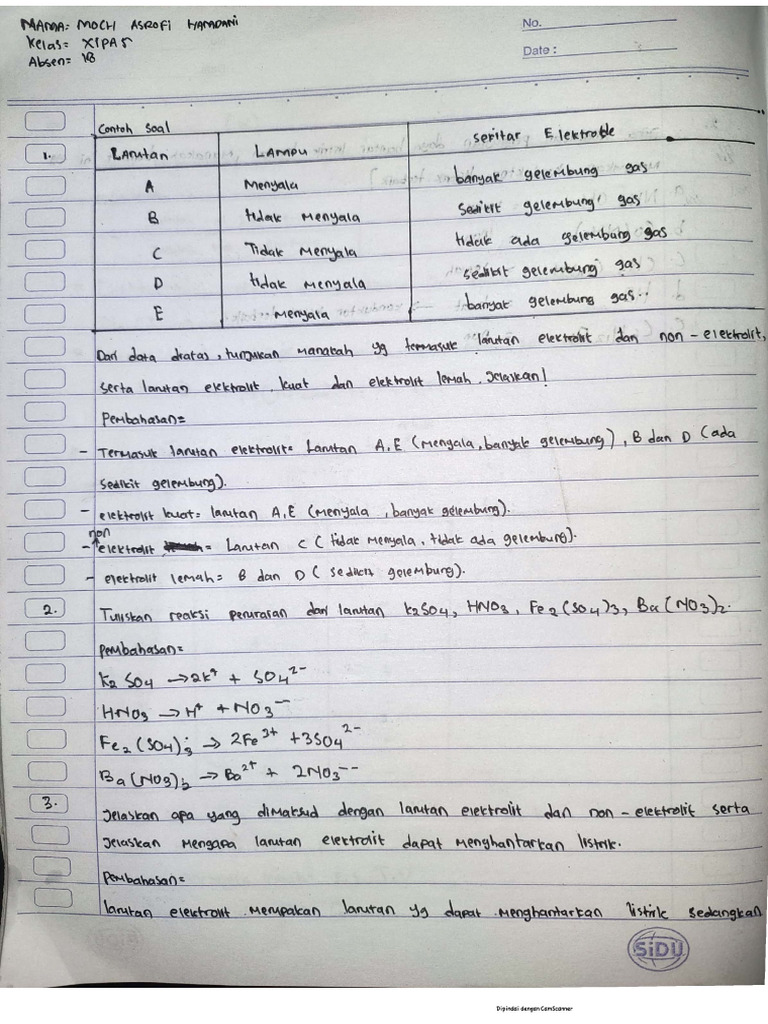 NAMA: MOCH ASROFI HAMDANI
Kelas= XIPA5
Absen= 18
No.
Date :
Contoh Soal
1. Larutan Lampu sekitar Elektrode
A Menyala banyak gelembung gas
B tidak Menyala sedikit gelembung gas
C Tidak Menyala tidak ada gelembung gas
D tidak Menyala sedikit gelembung gas
E Menyala banyak gelembung gas..
Dari data diatas, tunjukan manakah yg termasuk larutan elektrolit dan non-elektrolit,
serta larutan elektrolit kuat dan elektrolit lemah. Jelaskan!
Pembahasan=
- Termasuk larutan elektrolit= Larutan A,E (Menyala, banyak gelembung), B dan D (ada
sedikit gelembung).
- elektrolit kuat= larutan A,E (Menyala, banyak gelembung).
- non elektrolit = Larutan C (tidak Menyala, tidak ada gelembung).
- elektrolit lemah= B dan D (sedikit gelembung).
2. Tuliskan reaksi penguraian dari larutan K2SO4, HNO3, Fe2(SO4)3, Ba(NO3)2.
Pembahasan=
K2 SO4 → 2K⁺ + SO4²⁻
HNO3 → H⁺ + NO3⁻
Fe2(SO4)3 → 2Fe³⁺ + 3SO4²⁻
Ba(NO3)2 → Ba²⁺ + 2NO3⁻⁻
3. Jelaskan apa yang dimaksud dengan larutan elektrolit dan non-elektrolit serta
Jelaskan Mengapa larutan elektrolit dapat menghantarkan listrik.
Pembahasan=
larutan elektrolit Merupakan larutan yg dapat Menghantarkan listrik sedangkan
SiDU
Dipindai dengan CamScanner